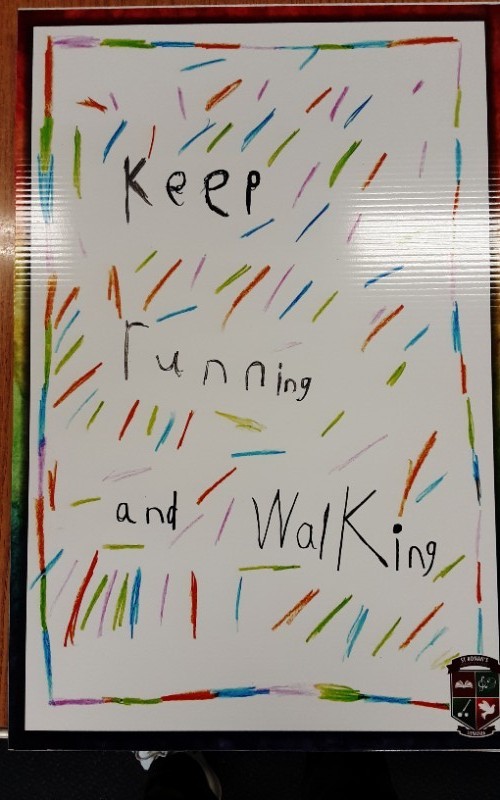 Keep
running
and Walking